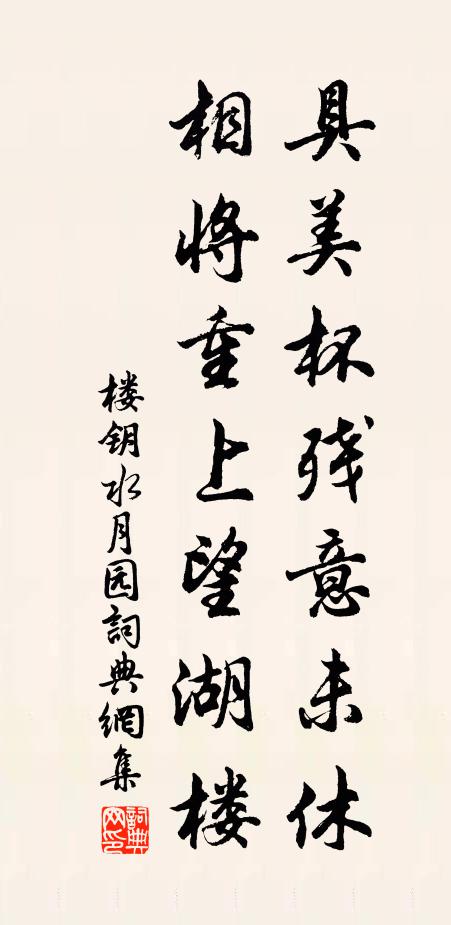 具美杯残意未休
相将重上望湖楼
楼钥水月园詞典網集
詞典网印